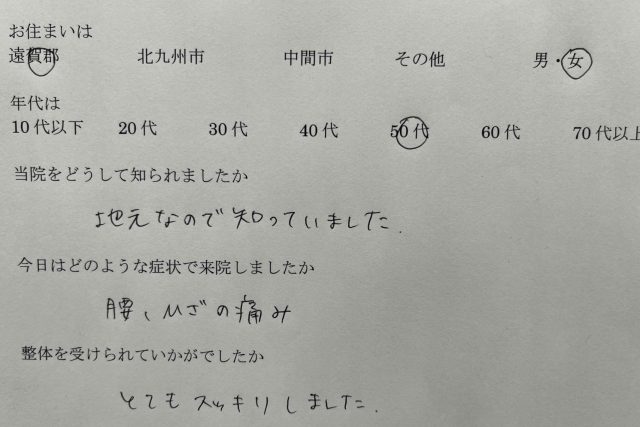 お住まいは
遠賀郡 北九州市 中間市 その他 男・女
年代は
10代以下 20代 30代 40代 50代 60代 70代以上
当院をどうして知られましたか
地元なので知っていました.
今日はどのような症状で来院しましたか
腰、ひざの痛み
整体を受けられていかがでしたか
とてもスッキリしました.